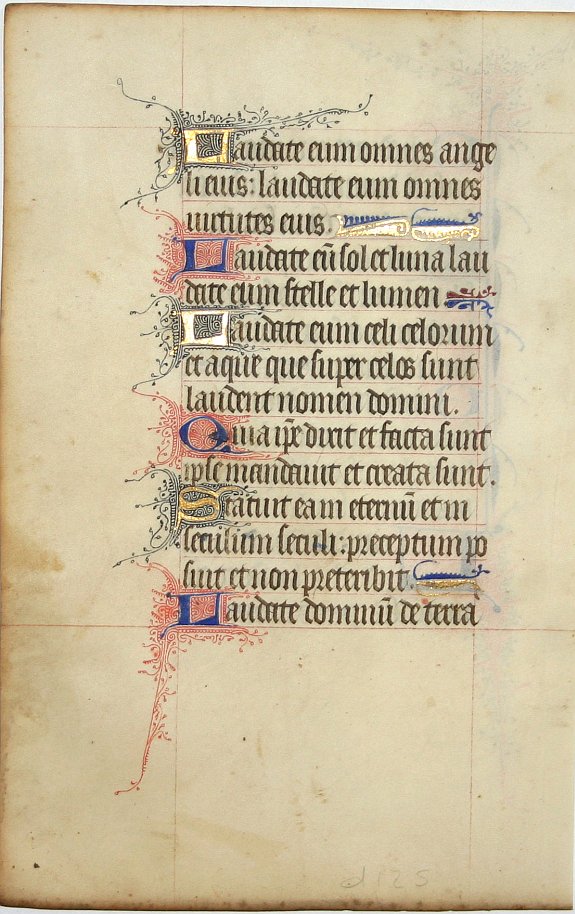 Laudate eum omnes ange
li eius: laudate eum omnes
uirtutes eius.
Laudate eū sol et luna lau
date eum stelle et lumen
Laudate eum celi celorum
et aque que super celos sunt
laudent nomen domini.
Quia ip̄e dixit et facta sunt
ipse mandauit et creata sunt.
Statuit ea in eternū et in
seculum seculi: preceptum po
suit et non preteribit.
Laudate dominū de terra
d 125